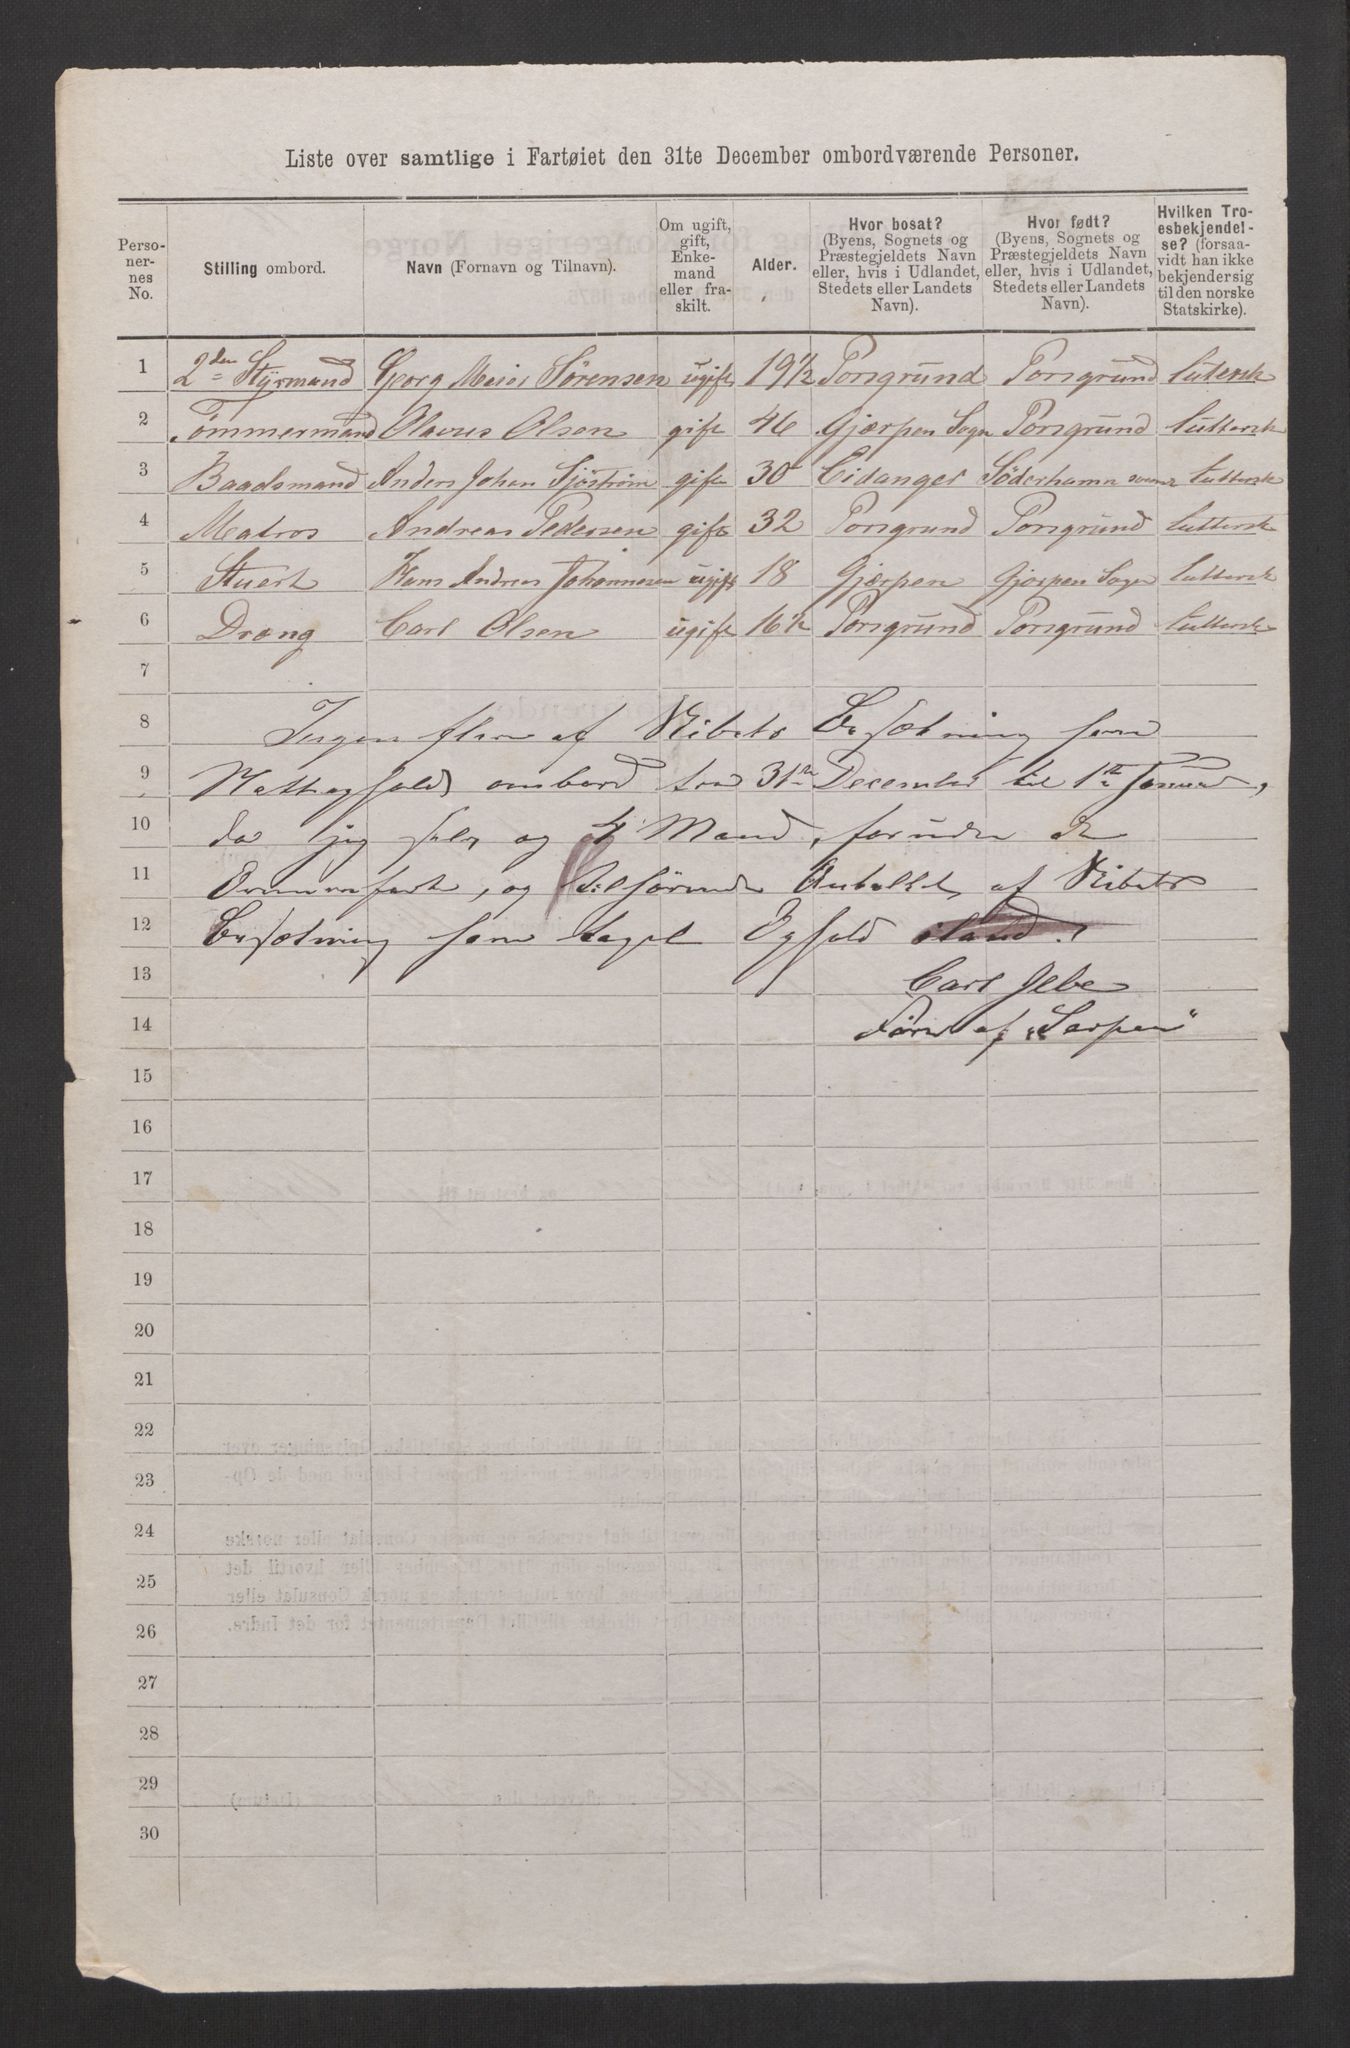 Liste over samtlige i Fartøiet den 31te December ombordværende Personer.
Personernes No. | Stilling ombord. | Navn (Fornavn og Tilnavn). | Om ugift, gift, Enkemand eller fraskilt. | Alder. | Hvor bosat? (Byens, Sognets og Præstegjeldets Navn eller, hvis i Udlandet, Stedets eller Landets Navn). | Hvor født? (Byens, Sognets og Præstegjeldets Navn eller, hvis i Udlandet, Stedets eller Landets Navn). | Hvilken Troesbekjendelse? (forsaavidt han ikke bekjender sig til den norske Statskirke).
1 | 2den Styrmand | Georg Sørensen | ugift | 19 1/2 | Porsgrund | Porsgrund | lutersk
2 | Tømmermand | Olavus Olsen | gift | 46 | Gjærpen Sogn | Porsgrund | luttersk
3 | Baadsmand | Anders Johan Sjöström | gift | 30 | Eidanger | Söderhamn | luttersk
4 | Matros | Andreas Pedersen | gift | 32 | Porsgrund | Porsgrund | luttersk
5 | Stuert | Hans Andreas Johannesen | ugift | 18 | Gjærpen | Gjærpen Sogn | luttersk
6 | Dræng | Carl Olsen | ugift | 16 1/2 | Porsgrund | Porsgrund | luttersk
7
8 Ingen flere af Skibets Besætning have
9 Nattophold ombord fra 31te December til 1ste Januar,
10 da jeg selv og 4 Mand, foruden de
11 og tilhørende Antallet af Skibets
12 Besætning have taget Ophold iland.
13 Carl Jebe
14 Fører af "Sarpen"
15
16
17
18
19
20
21
22
23
24
25
26
27
28
29
30